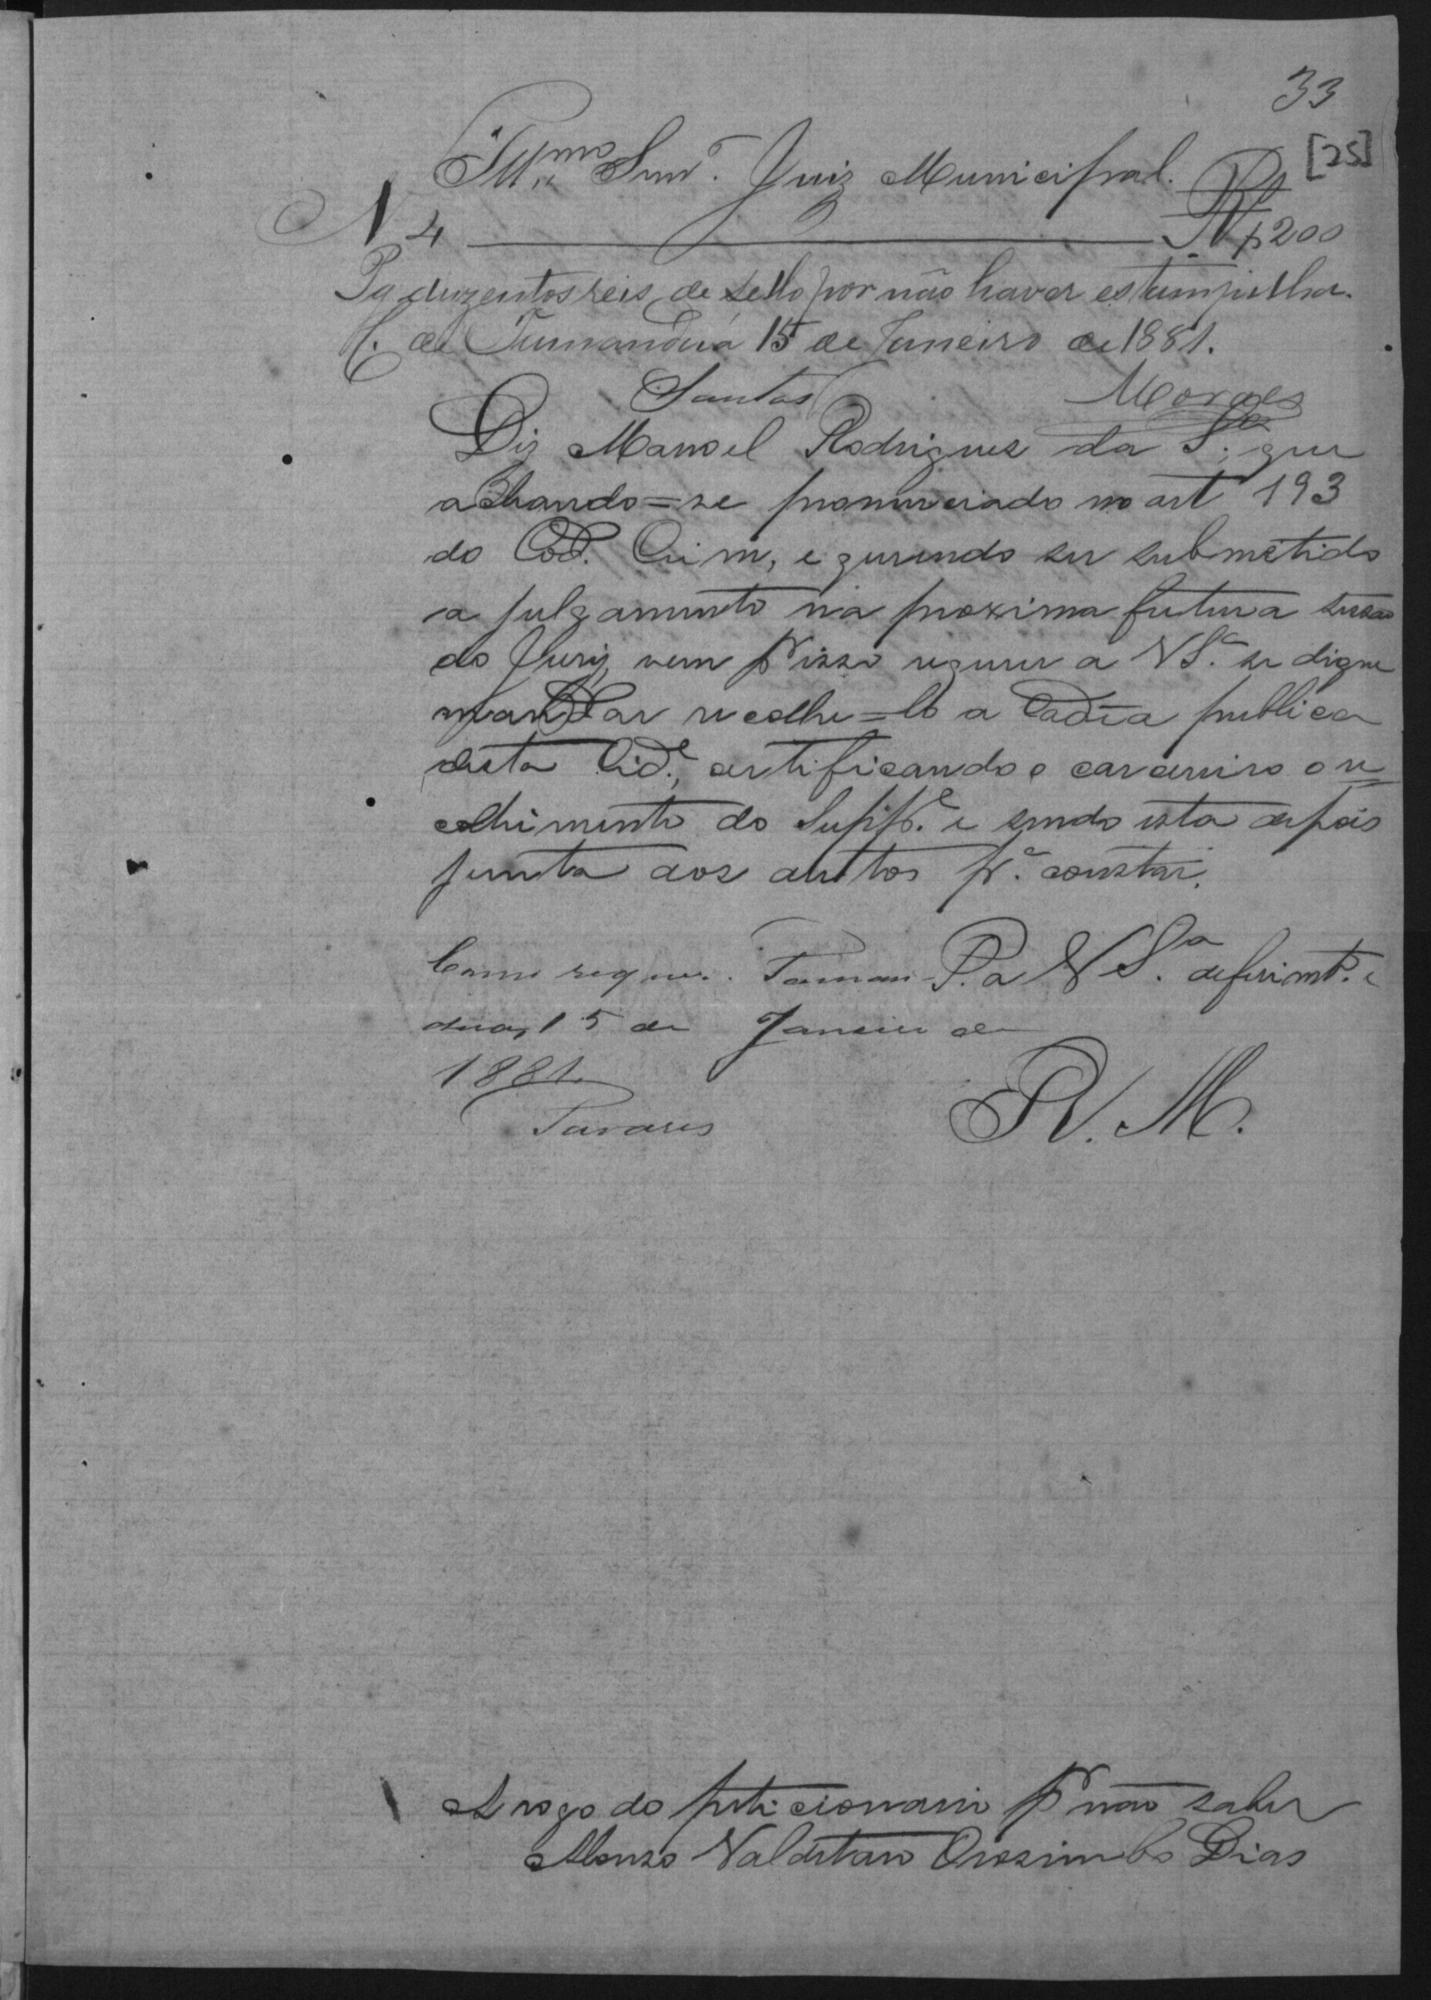 33
[25]
Illmo Snr. Juiz Municipal.
N 4 R $200
Pg duzentos reis de sello por não haver estampilha.
C. de Tamanduá 15 de Janeiro de 1881.
Santos Moraes
Diz Manoel Rodrigues da Sa. que
achando=se pronunciado no art 193
do Cod. Crim, e querendo ser submetido
a julgamento na proxima futura sessão
do Jury, vem pr isso requerer a VSa. se digne
mandar recolhe=lo a Cadia publica
desta Cide., certificando o carcereiro o re
colhimento do Suppe. e sendo esta depois
junta aos autos pa. constar.
P. a VSa. deferimto. e
R. M.
Como requer. Taman
dua, 15 de Janeiro de
1881.
Tavares
A rogo do peticionario pr não saber
Alonso Valdetaro Orozimbo Dias